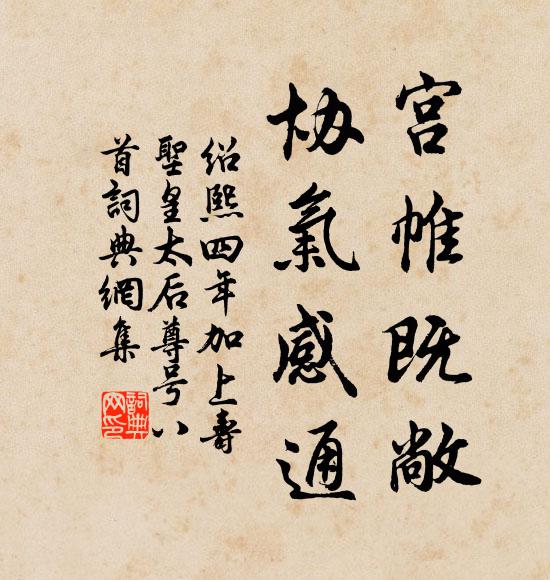 宫帷既敞
协氣感通
绍熙四年加上壽
聖皇太后尊号八
首詞典網集
詞典
网印